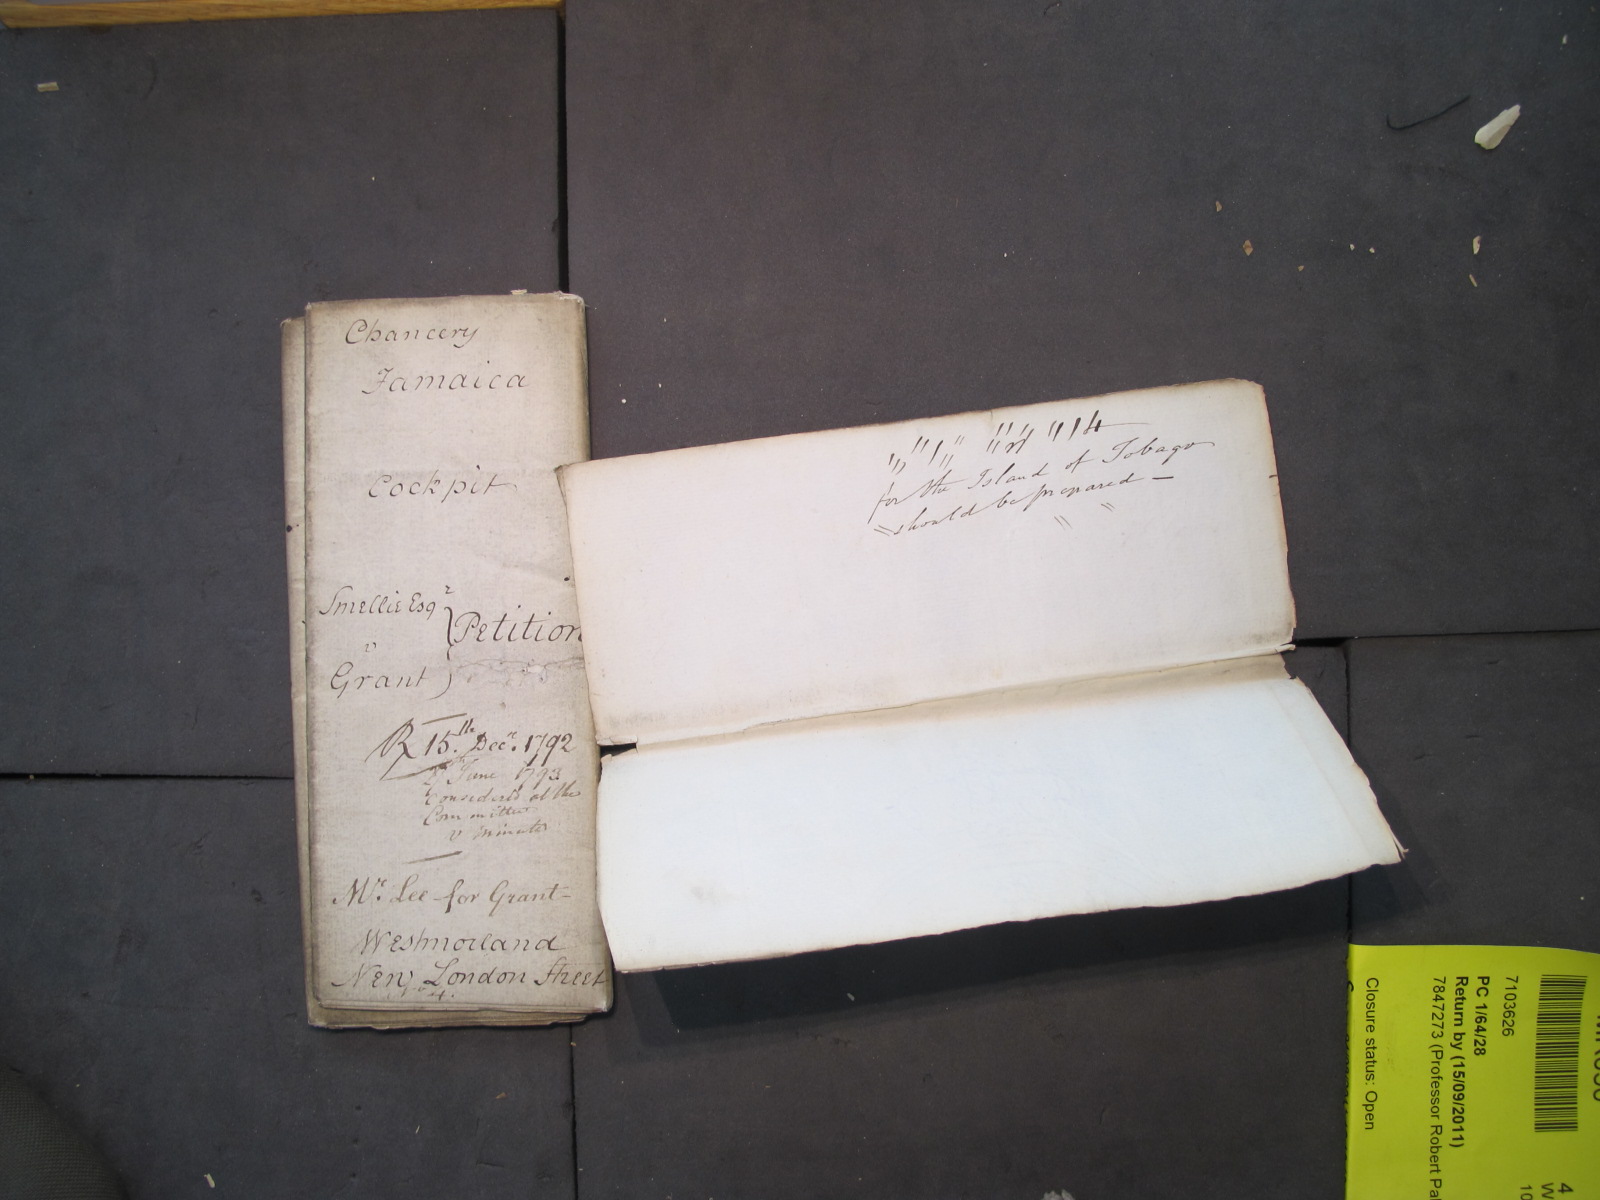 Chancery
Jamaica
Cockpit
Smellie Esqr
v
Grant
Petition
R 15.th Decr. 1792
June 1793
Considered at the
Committee
v minutes
Mr. Lee for Grant
Westmorland
New London Street
for the Island of Tobago
should be prepared —
7103626
PC 1/64/28
Return by (15/09/2011)
7847273 (Professor Robert
Closure status: Open